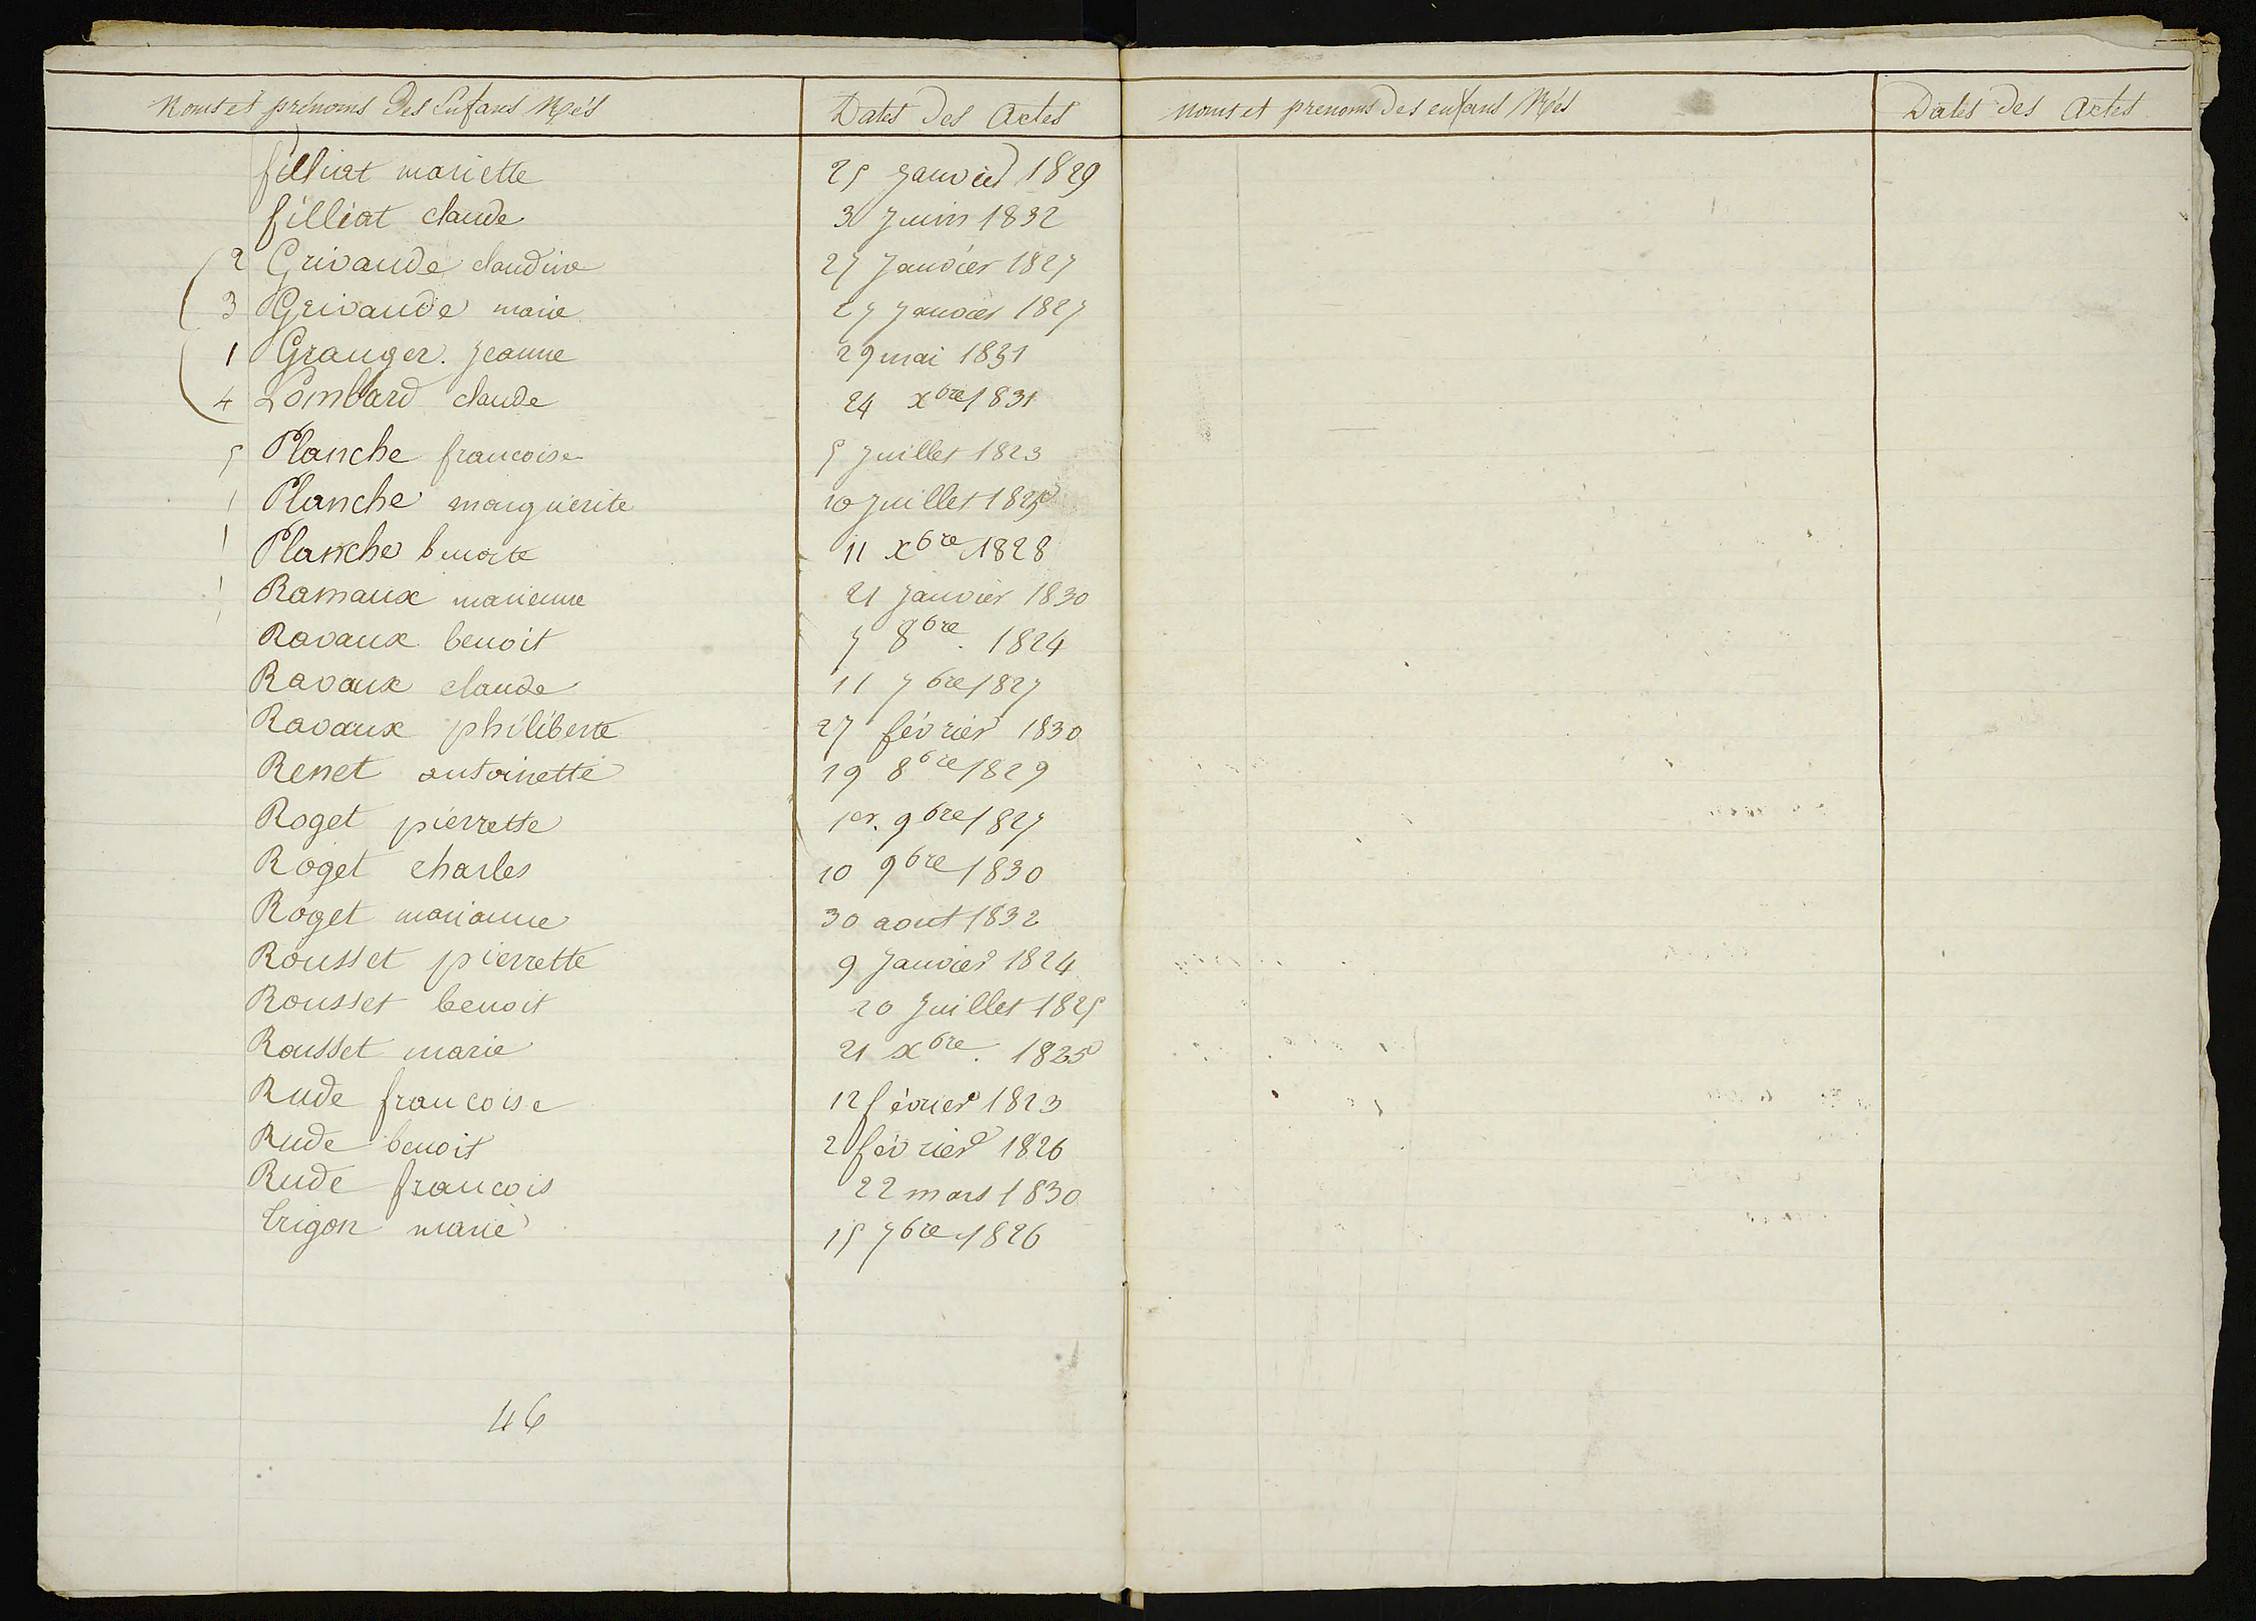 Noms et prénoms des Enfans Nés Dates des Actes
filliat mariette 25 Janvier 1829
filliat claude 3 Juin 1832
2 Grivaude claudine 27 Janvier 1827
3 Grivaude marie 27 Janvier 1827
1 Granger. Jeanne 29 mai 1831
4 Lombard claude 24 xbre 1831
5 Planche francoise 5 Juillet 1823
Planche marguerite 10 Juillet 1825
Planche benoite 11 xbre 1828
Ramaux marienne 21 Janvier 1830
Ravaux benoit 7 8bre. 1824
Ravaux claude 11 7bre 1827
Ravaux philiberte 27 février 1830
Renet antoinette 19 8bre 1829
Roget pierrette 1er. 9bre 1827
Roget charles 10 9bre 1830
Roget marianne 30 aout 1832
Rousset pierrette 9 Janvier 1824
Rousset benoit 20 Juillet 1825
Rousset marie 21 xbre. 1825
Rude francoise 12 février 1823
Rude benoit 2 février 1826
Rude francois 22 mars 1830
trigon marie 15 7bre 1826
46
noms et prenoms des enfans Nés Dates des Actes